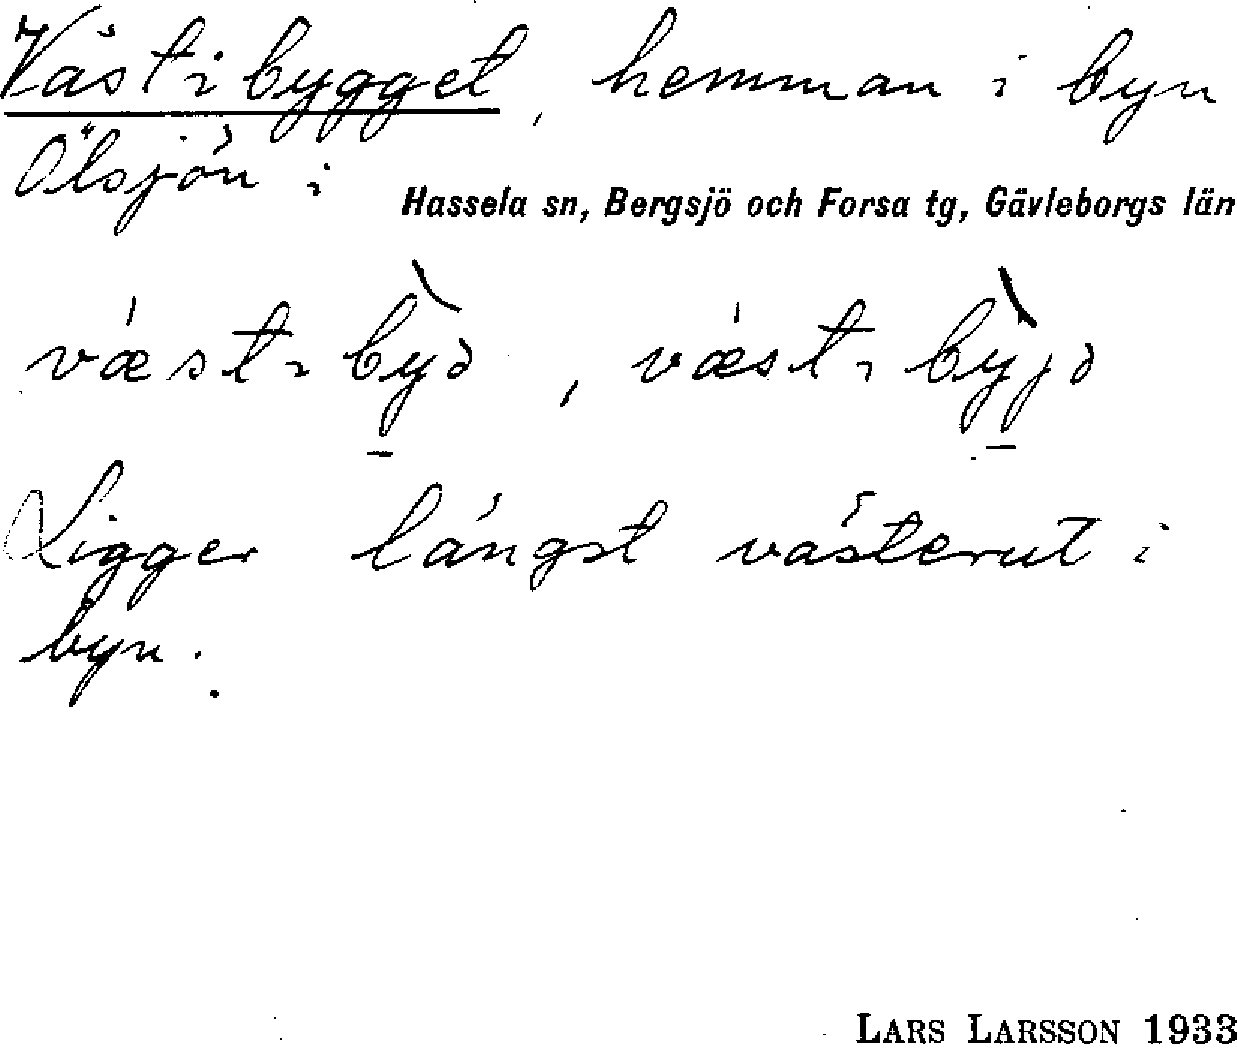 Västibygget, hemman i byn
Ölsjön i
Hassela sn, Bergsjö och Forsa tg, Gävleborgs län
væstıbỳə, væstıbỳjə
Ligger längst västerut i
byn.
LARS LARSSON 1933